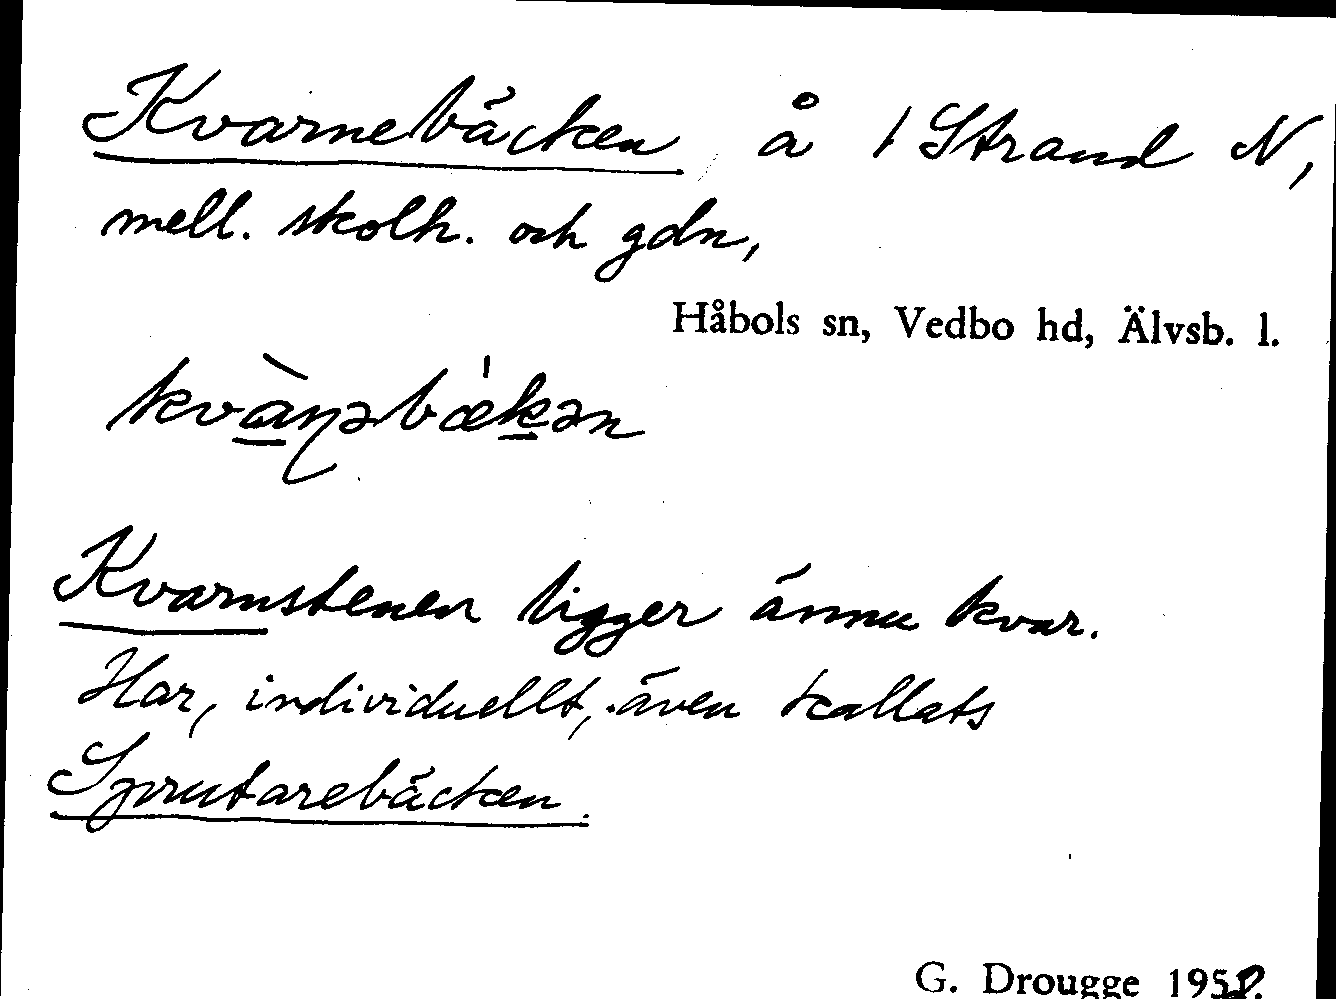 Kvarnebäcken, å 1 Strand N,
mell. skolh. och gdn,
Håbols sn, Vedbo hd, Älvsb. l.
kvàɳəbæ̍kən
Kvarnstenen ligger ännu kvar.
Har, individuellt, även kallats
Sprutarebäcken.
G. Drougge